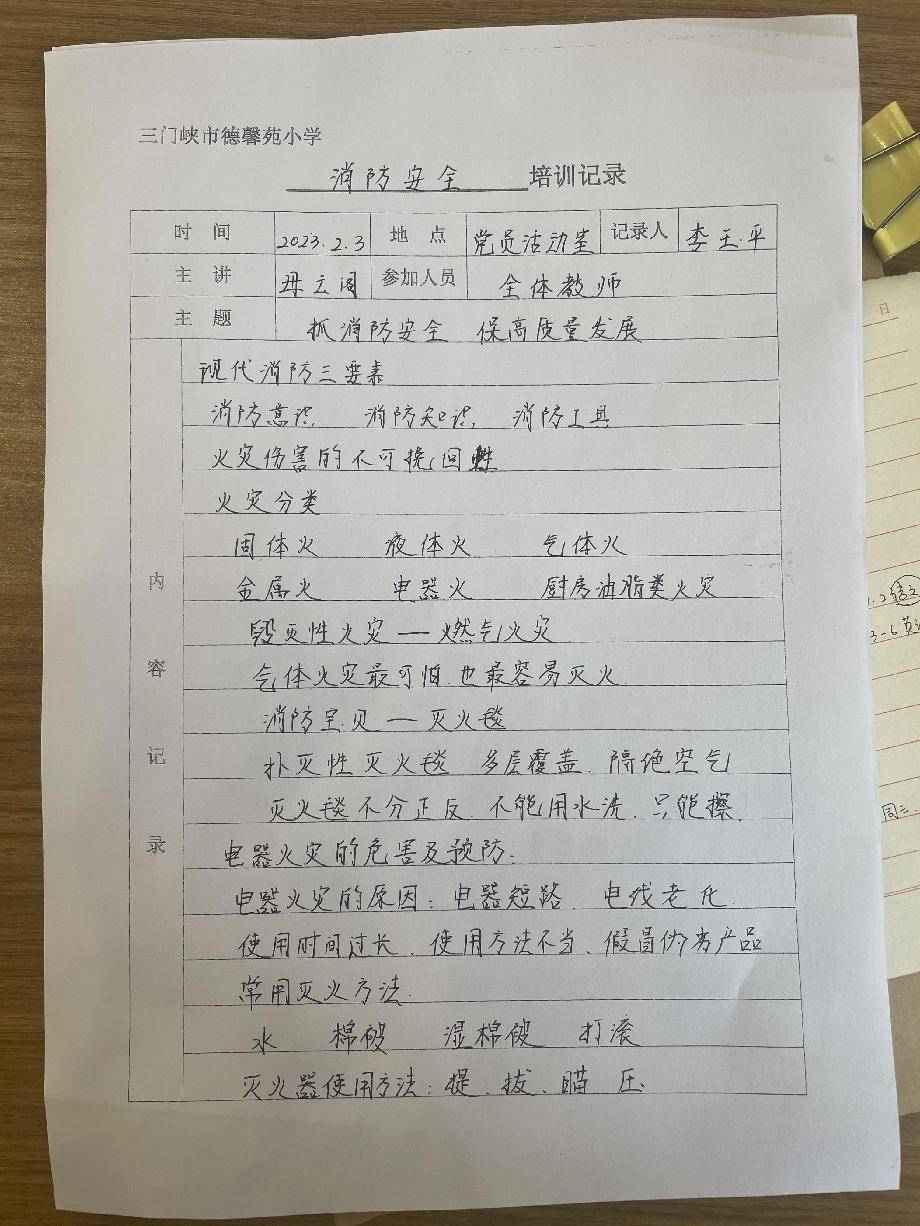 三门峡市德馨苑小学
消防安全 培训记录
时 间 2023.2.3 地 点 党员活动室 记录人 李玉平
主 讲 母云阁 参加人员 全体教师
主 题 抓消防安全 保高质量发展
内容记录
现代消防三要素
消防意识、 消防知识、 消防工具
火灾伤害的不可挽回性
火灾分类
固体火 液体火 气体火
金属火 电器火 厨房油脂类火灾
毁灭性火灾——燃气火灾
气体火灾最可怕.也最容易灭火.
消防宝贝——灭火毯
扑灭性灭火毯 多层覆盖.隔绝空气
灭火毯不分正反.不能用水洗.只能擦.
电器火灾的危害及预防.
电器火灾的原因:电器短路. 电线老化
使用时间过长、使用方法不当、假冒伪劣产品
常用灭火方法.
水 棉被 湿棉被 打滚
灭火器使用方法:提、拔、瞄、压.
日
周三